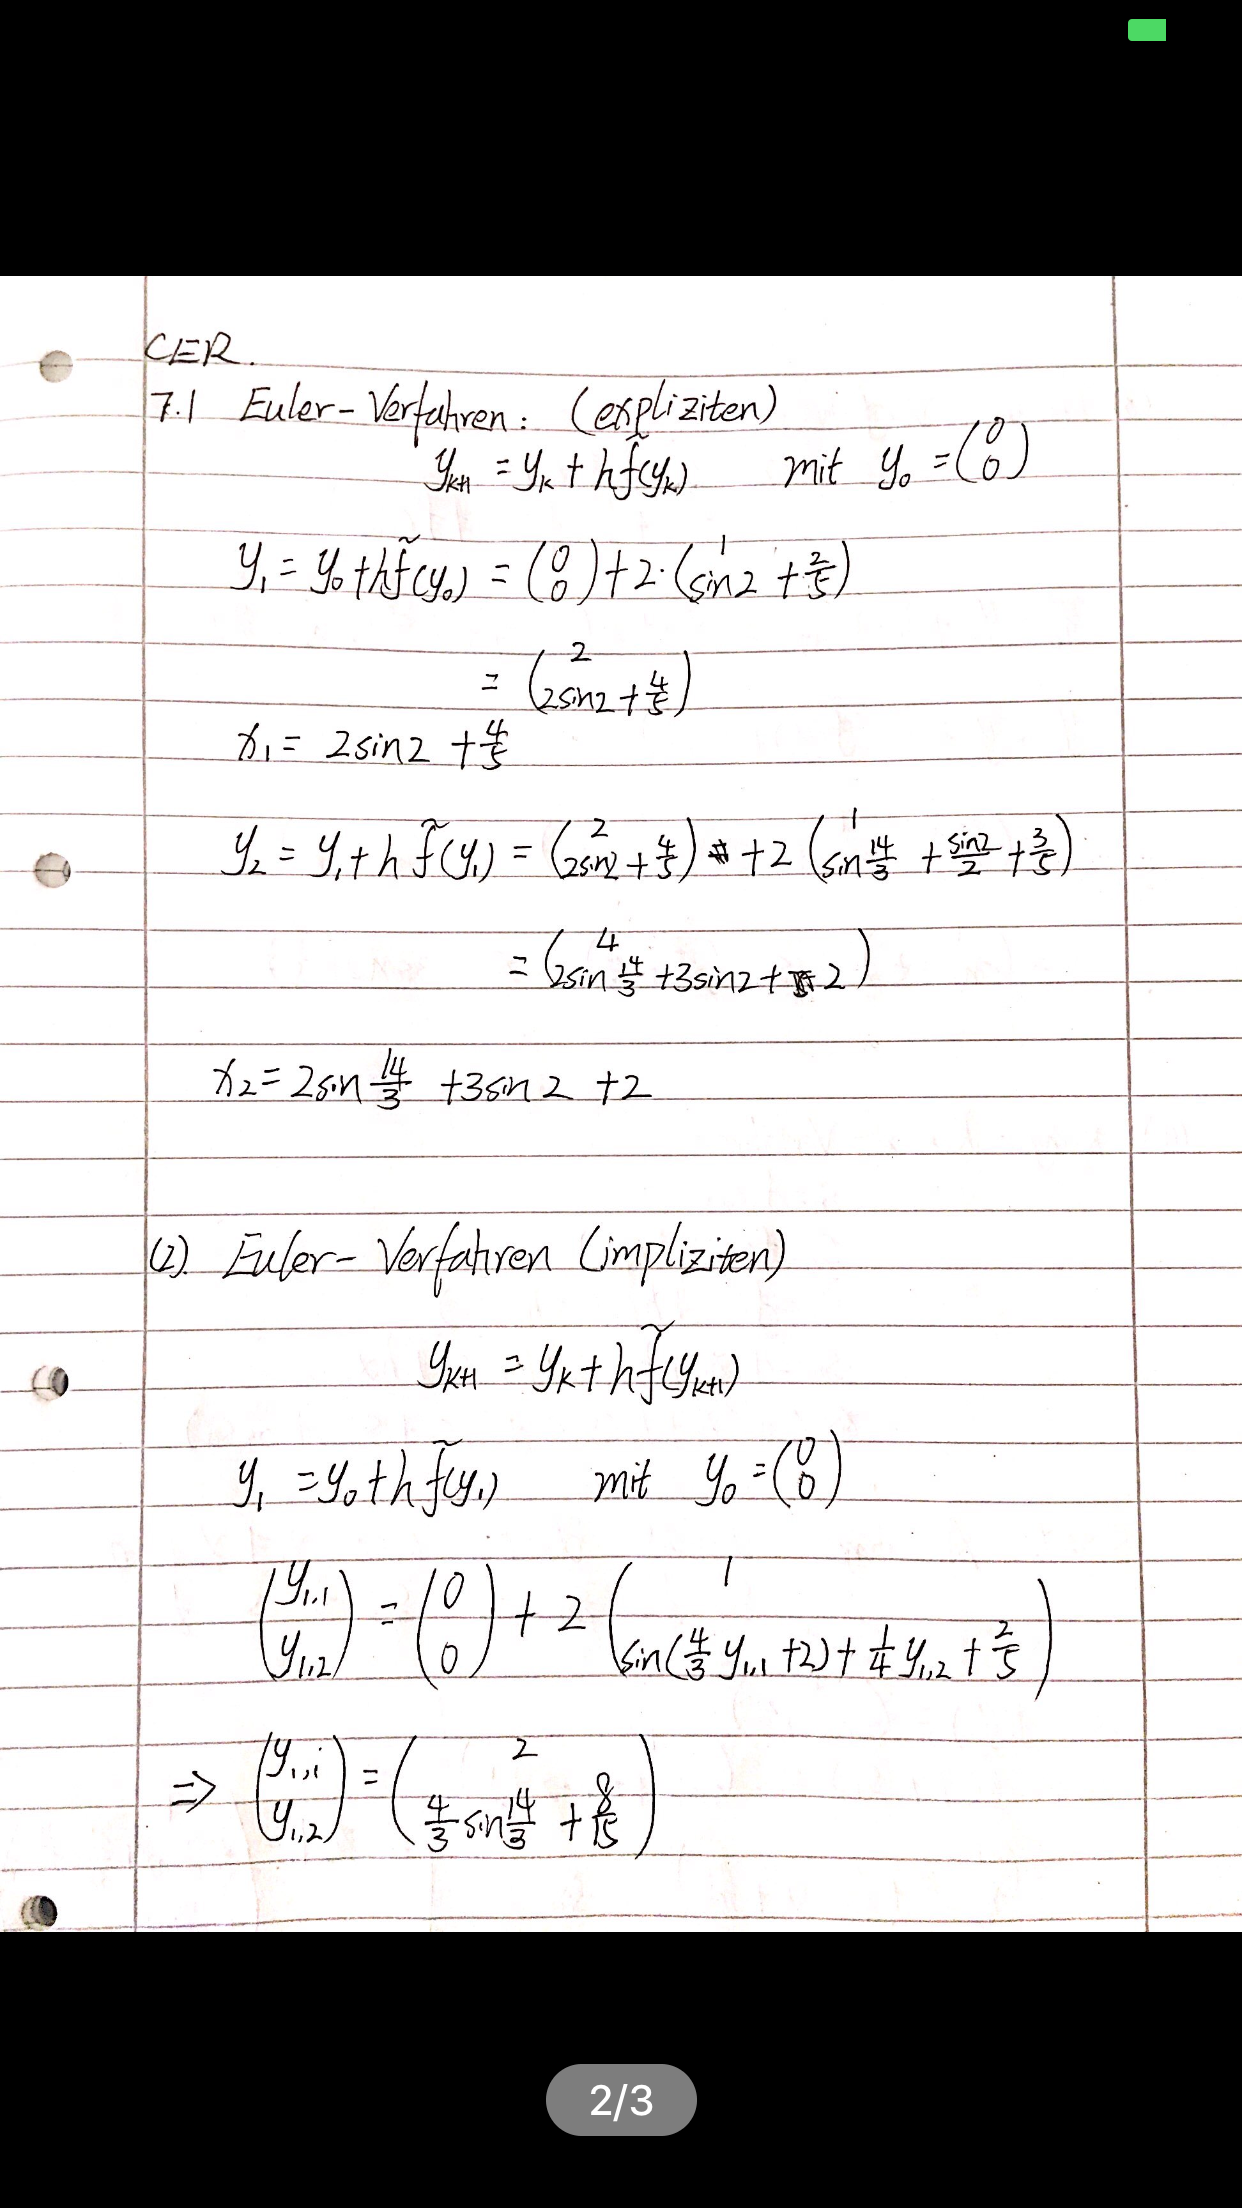 CER.
7.1 Euler-Verfahren: (expliziten)
y_{k+1} = y_k + h f̃(y_k) mit y_0 = (0 0)
y_1 = y_0 + h f̃(y_0) = (0 0) + 2·(1 sin2 + 2/5)
= (2 2sin2 + 4/5)
x_1 = 2sin2 + 4/5
y_2 = y_1 + h f̃(y_1) = (2 2sin2 + 4/5) + 2 (1 sin 14/3 + sin2/2 + 3/5)
= (4 2sin 14/3 + 3sin2 + 2)
x_2 = 2sin 14/3 + 3sin2 + 2
(2). Euler-Verfahren (impliziten)
y_{k+1} = y_k + h f̃(y_{k+1})
y_1 = y_0 + h f̃(y_1) mit y_0 = (0 0)
(y_{1,1} y_{1,2}) = (0 0) + 2 (1 sin(4/3 y_{1,1} + 2) + 1/4 y_{1,2} + 2/5)
⇒ (y_{1,1} y_{1,2}) = (2 4/3 sin 14/3 + 8/15)
2/3